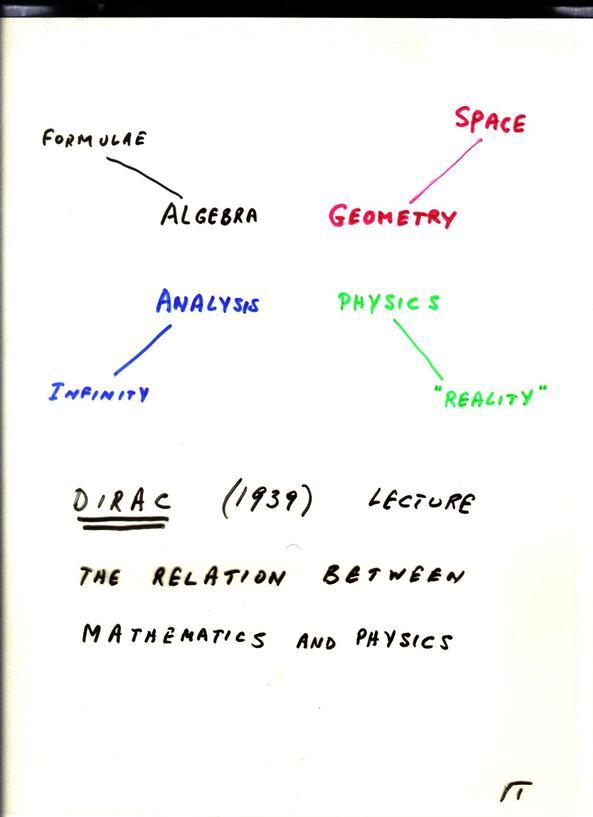 SPACE
FORMULAE
ALGEBRA GEOMETRY
ANALYSIS PHYSICS
INFINITY "REALITY"
DIRAC (1939) LECTURE
THE RELATION BETWEEN
MATHEMATICS AND PHYSICS